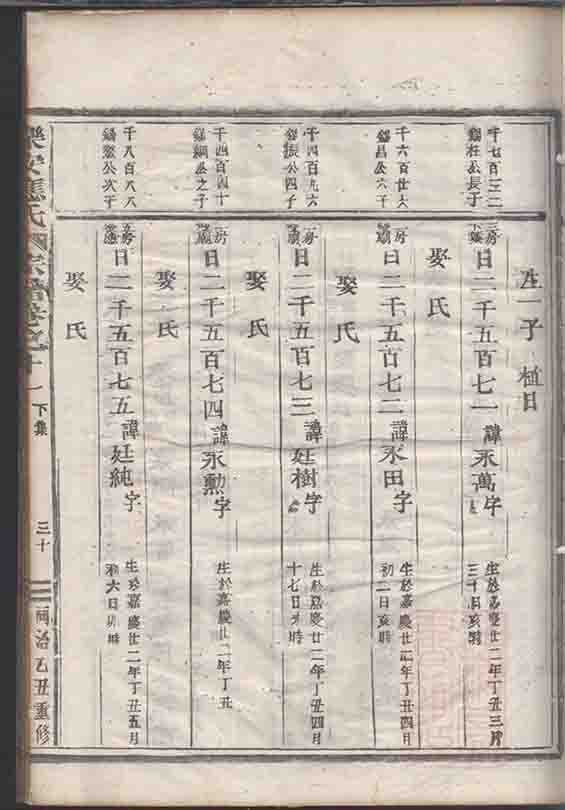 生一子 植日
千七百三二
錫柱公長子
房
日二千五百七一 諱永萬 字
生於嘉慶廿二年丁丑三月
三十日亥時
娶氏
千六百廿六
錫昌公六子
房
日二千五百七二 諱永田 字
生於嘉慶廿二年丁丑四月
初二日亥時
娶氏
千四百九六
錫振公四子
房
日二千五百七三 諱廷樹 字
生於嘉慶廿二年丁丑四月
十七日未時
娶氏
千四百四十
錫綱公之子
房
日二千五百七四 諱永勲 字
生於嘉慶廿二年丁丑
娶氏
千八百八八
錫鰲公次子
房
日二千五百七五 諱廷純 字
生於嘉慶廿二年丁丑五月
初六日 時
娶氏
樂安應氏 宗譜卷之十一 下集 三十 同治乙丑重修